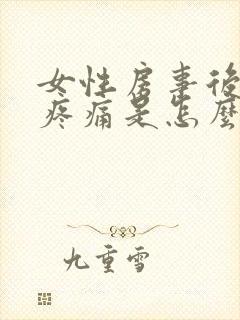 女性房事後
疼痛是怎麼
九重雪